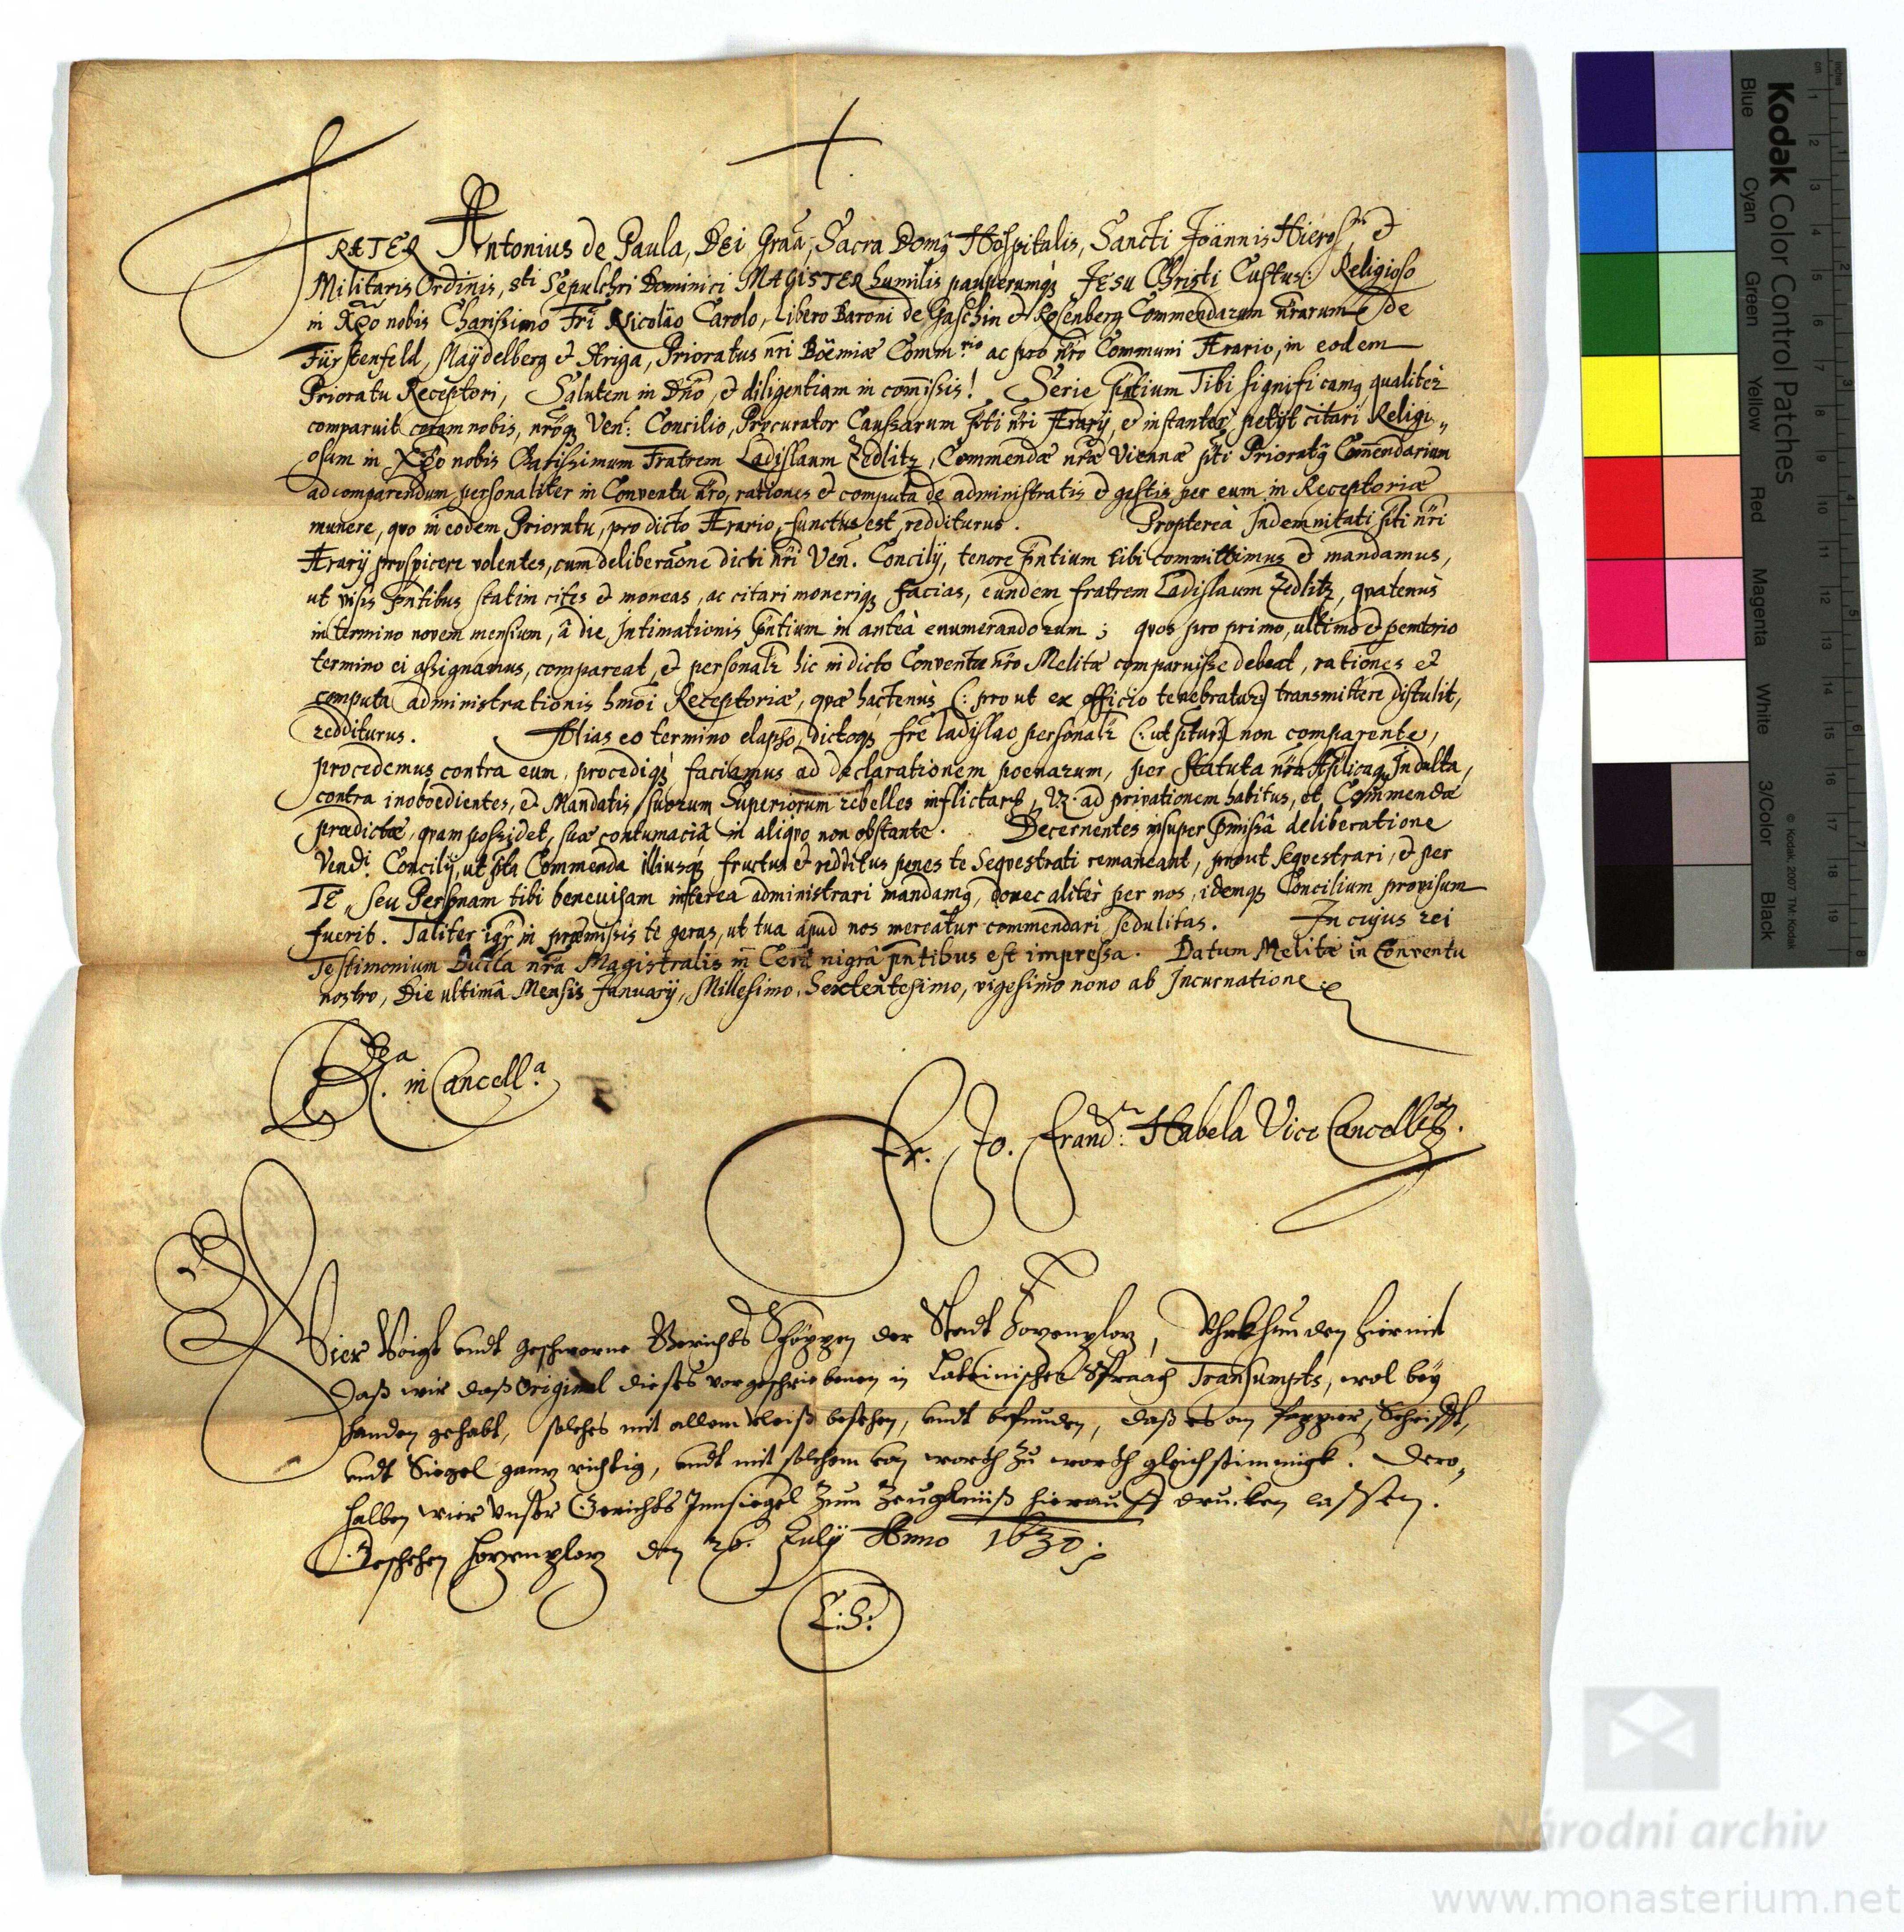 FRATER Antonius de Paula, Dei Graã, Sacra Domq Hospitalis, Sancti Joannis Hieros. et
Militaris Ordinis, sti Sepulchri Dominici MAGISTER humilis pauperumqz Jesu Christi Custus: Religioso
in Xpo nobis Charissimo Fri Nicolao Carolo, Libero Baroni de Gaschin et Rosenberg Commendarum nrarum de
Fürstenfeld, Maydelberg et Striga, Prioratus nri Böemiæ Comm.rio ac pro nro Communi Ærario, in eodem
Prioratu Receptori, Salutem in Dño, et diligentiam in comissis! Serie pntium Tibi significamq qualiter
comparuit coram nobis, nroqz Ven: Concilio, Procurator Caussarum pti nri Ærarij, et instanter petijt citari Religi„
osum in Xpo nobis Charissimum Fratrem Ladislaum Zedlitz, Commendæ nræ Viennæ pti Prioratq Comendarium
ad comparendum personaliter in Conventu nro, rationes et computa de administratis et gestis per eum in Receptoriæ
munere, quo in eodem Prioratu, pro dicto Ærario, functus est, redditurus. Propterea Indemnitati pti nri
Ærarij prospicere volentes, cum deliberaone dicti nri Ven. Concilij, tenore pntium tibi committimus et mandamus,
ut visis pntibus statim cites et moneas, ac citari moneriqz facias, eundem fratrem Ladislaum Zedlitz, quatenus
in termino novem mensium, â die Intimationis pntium in anteà enumerandorum; quos pro primo, ultimo et pemtorio
termino ei assignamus, compareat, et personalr hic in dicto Conventu nro Melitæ comparuisse debeat, rationes et
computa administrationis hmoi Receptoriæ, quæ hactenùs (: prout ex officio tenebratur:) transmittere distulit,
redditurus. Alias eo termino elapso, dictoqz fre Ladislao personalr (: ut ptur:) non comparente,
procedemus contra eum, procediqz faciemus ad declarationem poenarum, per Statuta nra Aplicaqz Indulta,
contra inoboedientes, et Mandatis suorum Superiorum rebelles inflictarq, Vz. ad privationem habitus, et Commendæ
prædictæ, quam possidet, suæ contumaciâ in aliquo non obstante. Decernentes insuper pmissâ deliberatione
Vendi Concilij, ut pta Commenda illiusqz fructus et redditus penes te Seqvestrati remaneant, prout seqvestrari, et per
TE, seu Personam tibi benevisam interea administrari mandamq, donec alitèr per nos, idemqz Concilium provisum
fuerit. Taliter igr in præmissis te geras, ut tua apud nos mereatur commendari sedulitas. In cujus rei
Testimonium Bulla nra Magistralis in Cerâ nigrâ pntibus est impressa. Datum Melitæ in Conventu
nostro, Die ultimâ Mensis Januarij, Millesimo, Sexcentesimo, vigesimo nono ab Incarnatione.
Rta. in Cancell.a
Fr. Jo. Francus: Habela Vice Cancellrs.
Wier Voigt undt geschworne Gerichts Schöppen der Stadt Hozenplotz, Uhrkhunden hiermit
Daß wir daß Original dieses vorgeschriebenen in Lateinischer Spraach Transumpts, wol bey
handen gehabt, solches mit allem vleiß besehen, undt befunden, daß es an Pappier, Schrifft,
undt Siegel ganz richtig, undt mit solchem von worth zu worth gleichstimmigk. Dero„
halben wier Unser Gerichts Innsiegel zum Zeugknüß hierauff drucken lassen.
Geschehen Hozenplotz den 26. July Anno 1630.
L:S:
Kodak Color Control Patches
Blue
Cyan
Green
Yellow
Red
Magenta
White
3/Color
Black
© Kodak, 2007 TM: Kodak
Národní archiv
www.monasterium.net